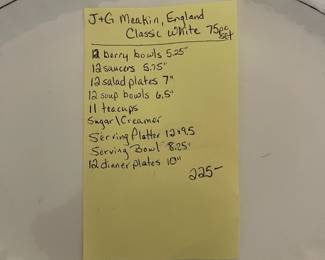 J+G Meakin, England
Classic White 75pc
set
12 berry bowls 5.25"
12 saucers 5.75"
12 salad plates 7"
12 soup bowls 6.5"
11 teacups
Sugar\Creamer
Serving Platter 12x9.5
Serving Bowl 8.25"
12 dinner plates 10"
225-